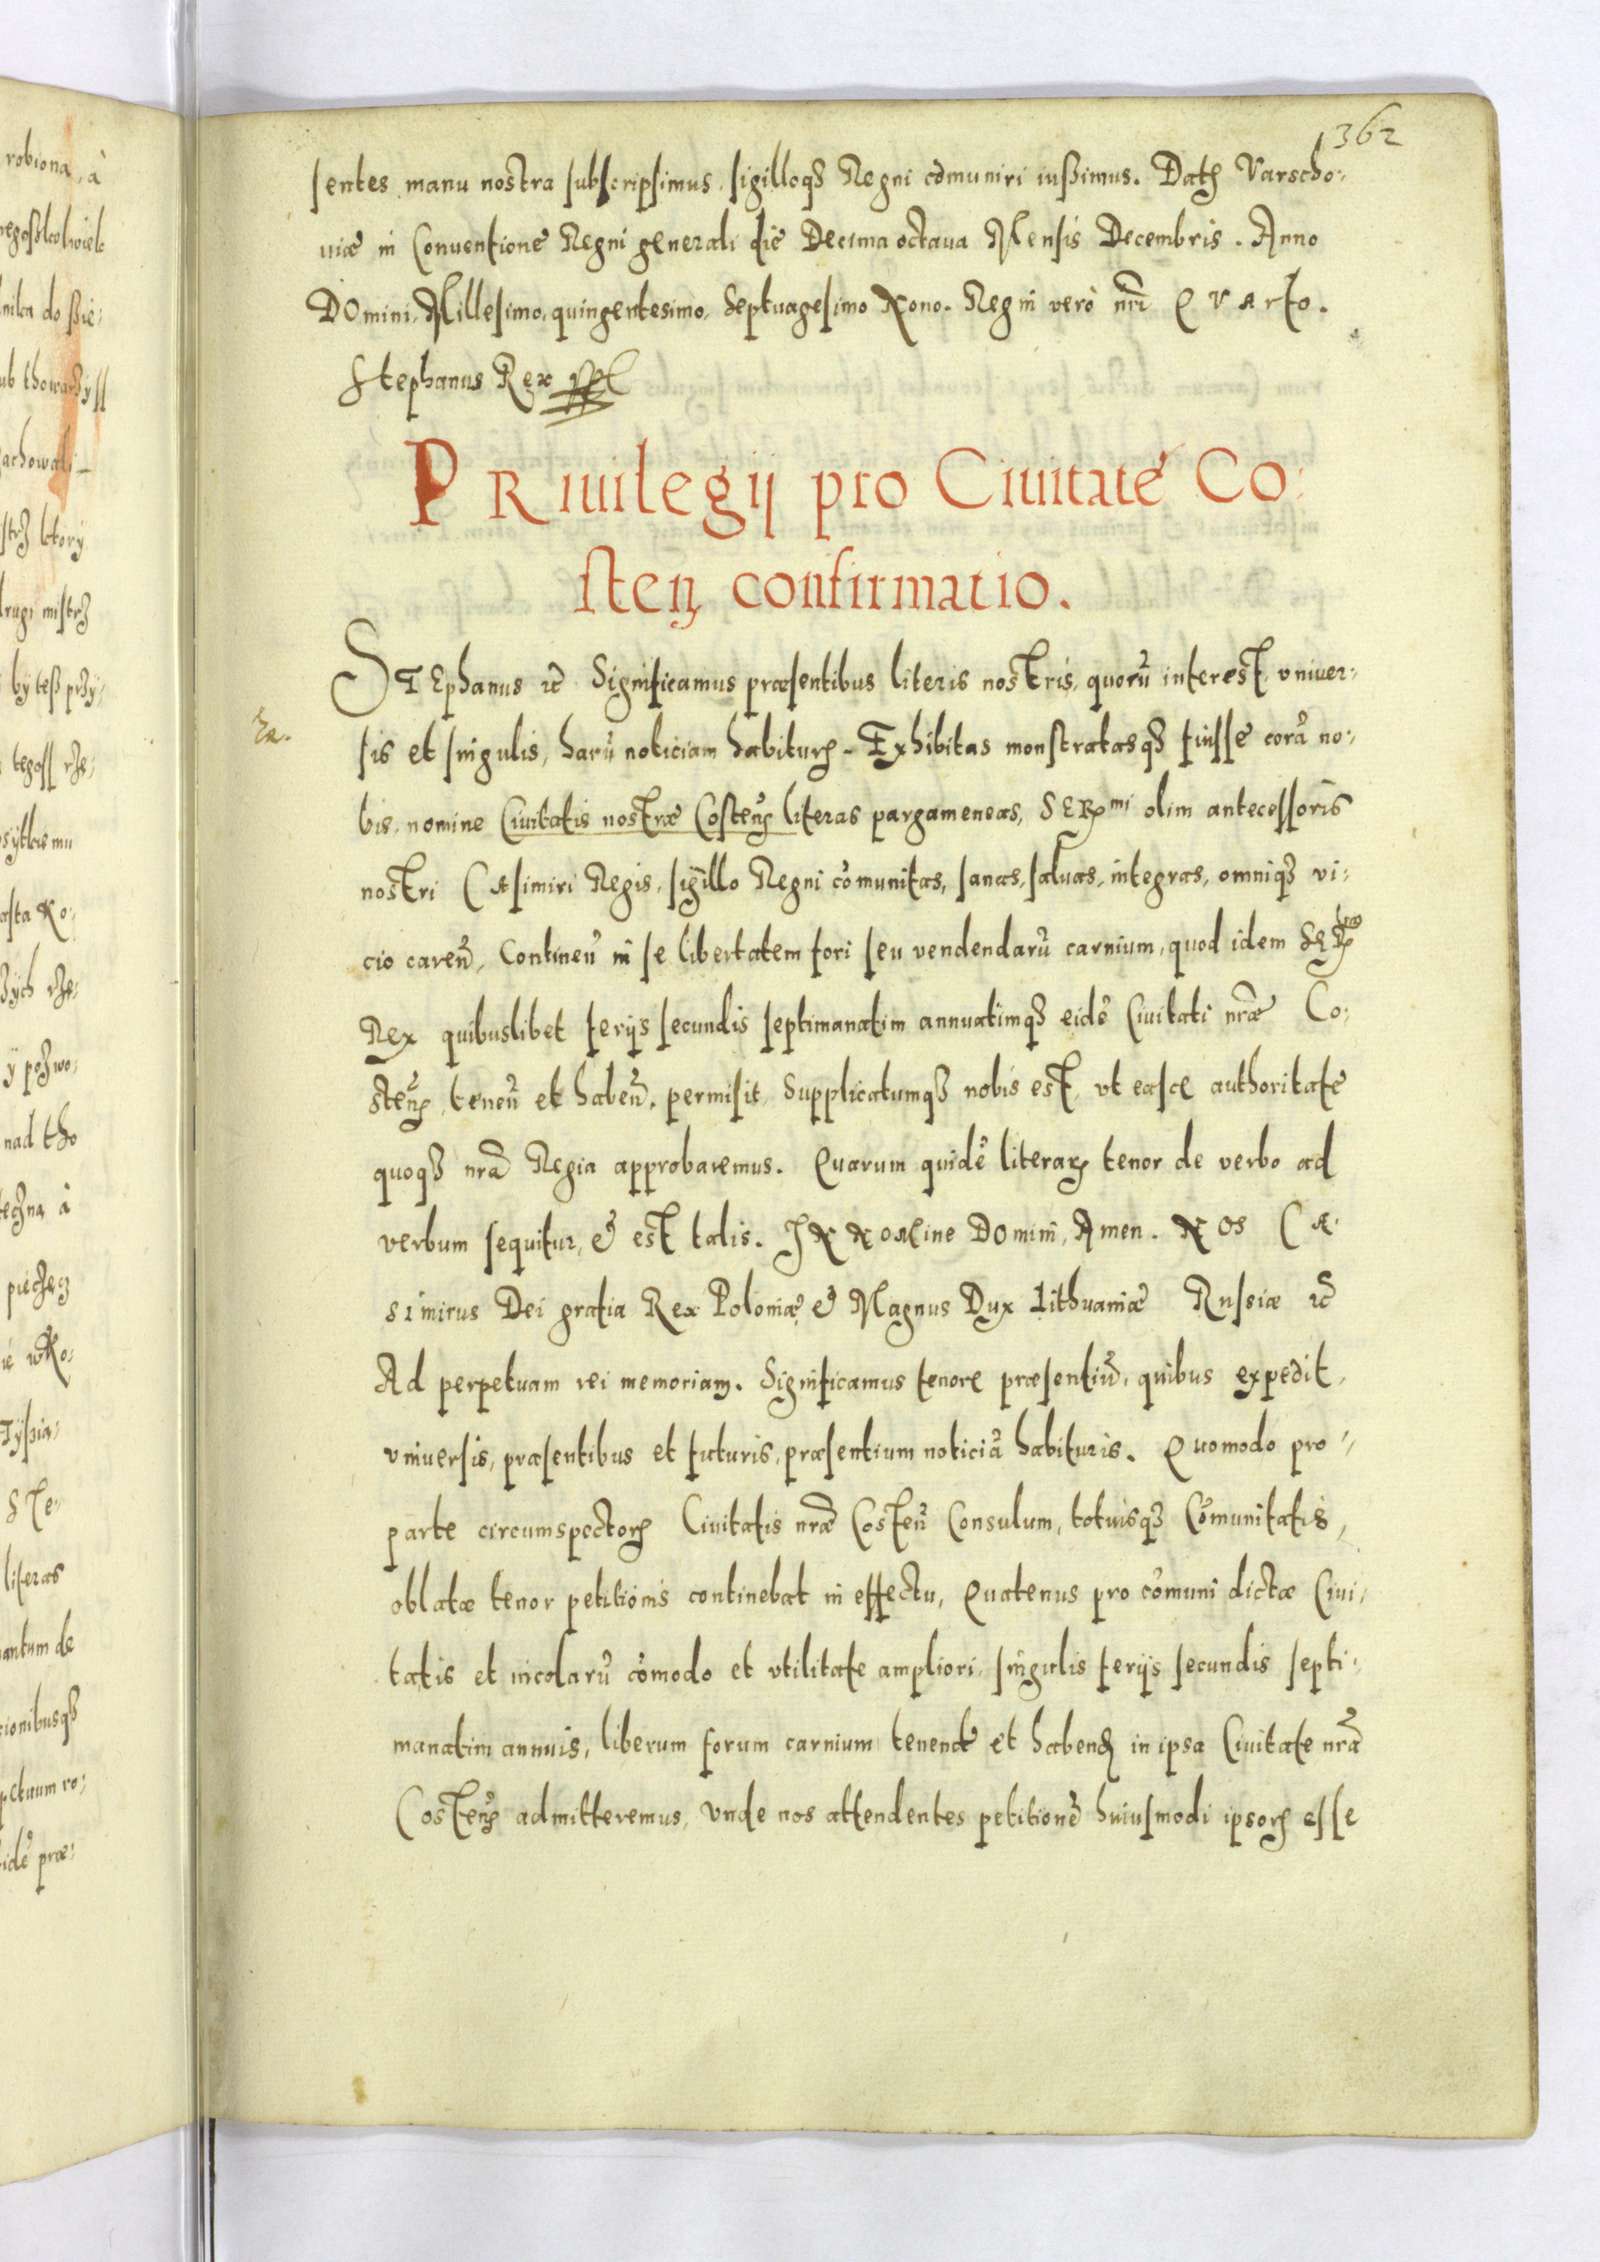 362
sentes manu nostra subscripsimus, sigilloqȝ Regni cōmuniri iussimus. Datꝫ Varscho:
uiæ in Conuentione Regni generali die Decima octaua Mensis Decembris. Anno
DOmini, Millesimo, quingentesimo, Septuagesimo Nono. Regni verò nr̃i QVArto.
Stephanus Rex
PRiuilegij pro Ciuitate Co:
stenꝫ confirmatio.
STEphanus ꝛc̃ Significamus præsentibus literis nostris, quorũ interest, vniuer:
sis et singulis, harũ noticiam habiturꝫ. Exhibitas monstratasqȝ fuisse corã no:
bis, nomine Ciuitatis nostræ Costen̄ꝫ literas pargameneas, SERmi olim antecessoris
nostri CAsimiri Regis, sigillo Regni cōmunitas, sanas, saluas, integras, omniqȝ vi:
cio caren̄, Continen̄ in se libertatem fori seu vendendarũ carnium, quod idem SER
Rex quibuslibet ferijs secundis septimanatim annuatimqȝ eidē Ciuitati nr̃æ Co:
sten̄ꝫ, tenen̄ et haben̄, permisit, Supplicatumqȝ nobis est, vt easce authoritate
quoqȝ nr̃a Regia approbaremus. Quarum quidē literarꝫ tenor de verbo ad
verbum sequitur, & est talis. IN NOMine DOmini, Amen. NOS CA:
SImirus Dei gratia Rex Poloniæ, & Magnus Dux Lithuaniæ Russiæ ꝛc̃
Ad perpetuam rei memoriam. Significamus tenore præsentiũ, quibus expedit,
vniuersis, præsentibus et futuris, præsentium noticiã habituris. Quomodo pro
parte circumspectorꝫ Ciuitatis nr̃æ Costen̄ Consulum, totiusqȝ Cōmunitatis,
oblatæ tenor petitionis continebat in effectu, Quatenus pro cōmuni dictæ Ciui:
tatis et incolarũ cōmodo et vtilitate ampliori, singulis ferijs secundis septi:
manatim annuis, liberum forum carnium tenend̄ et habendꝫ in ipsa Ciuitate nr̃a
Costen̄ꝫ admitteremus, Vnde nos attendentes petitionē huiusmodi ipsorꝫ esse